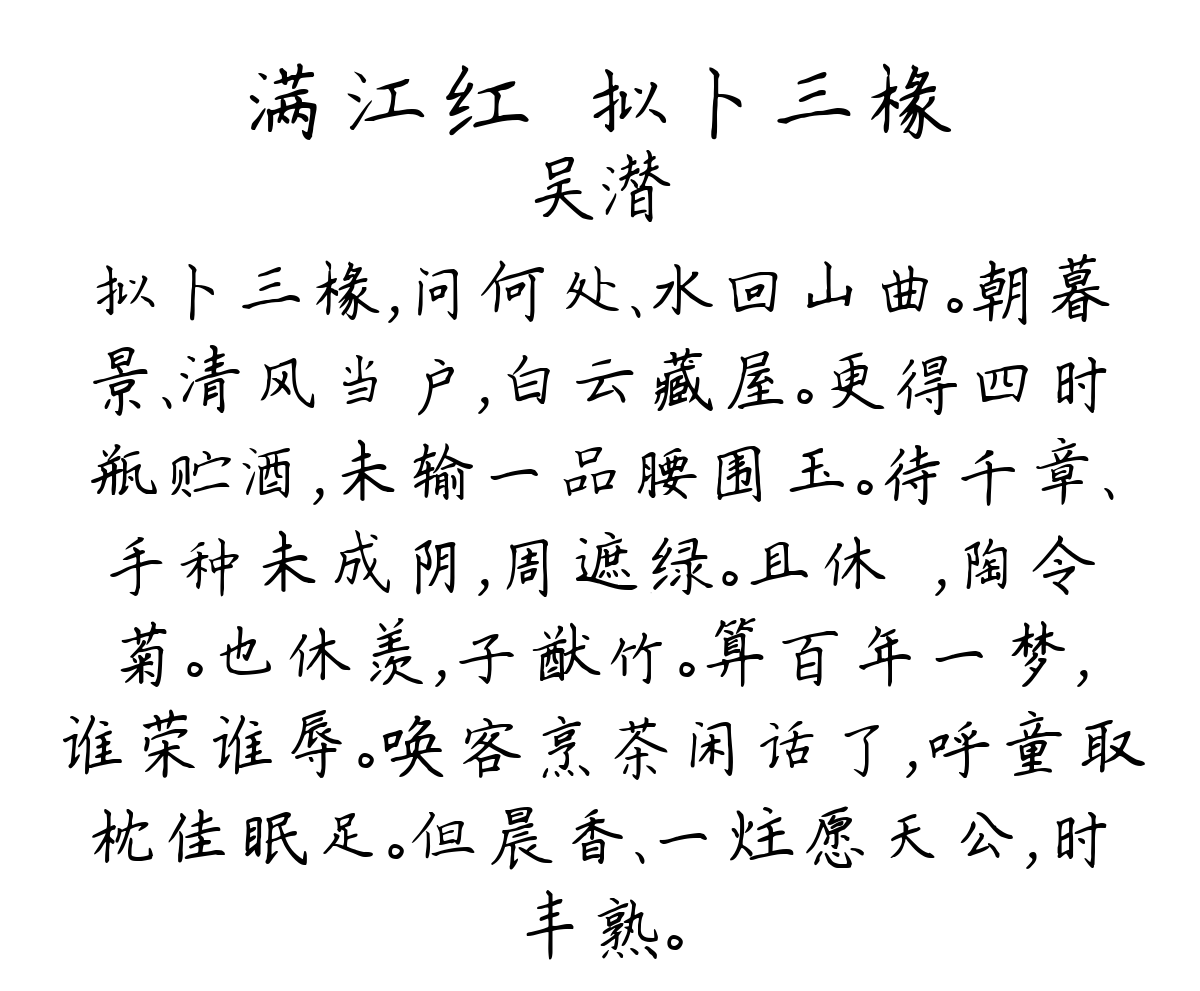 满江红 拟卜三椽
吴潜
拟卜三椽,问何处、水回山曲。朝暮
景、清风当户,白云藏屋。更得四时
瓶贮酒,未输一品腰围玉。待千章、
手种未成阴,周遮绿。且休 ,陶令
菊。也休羡,子猷竹。算百年一梦,
谁荣谁辱。唤客烹茶闲话了,呼童取
枕佳眠足。但晨香、一炷愿天公,时
丰熟。